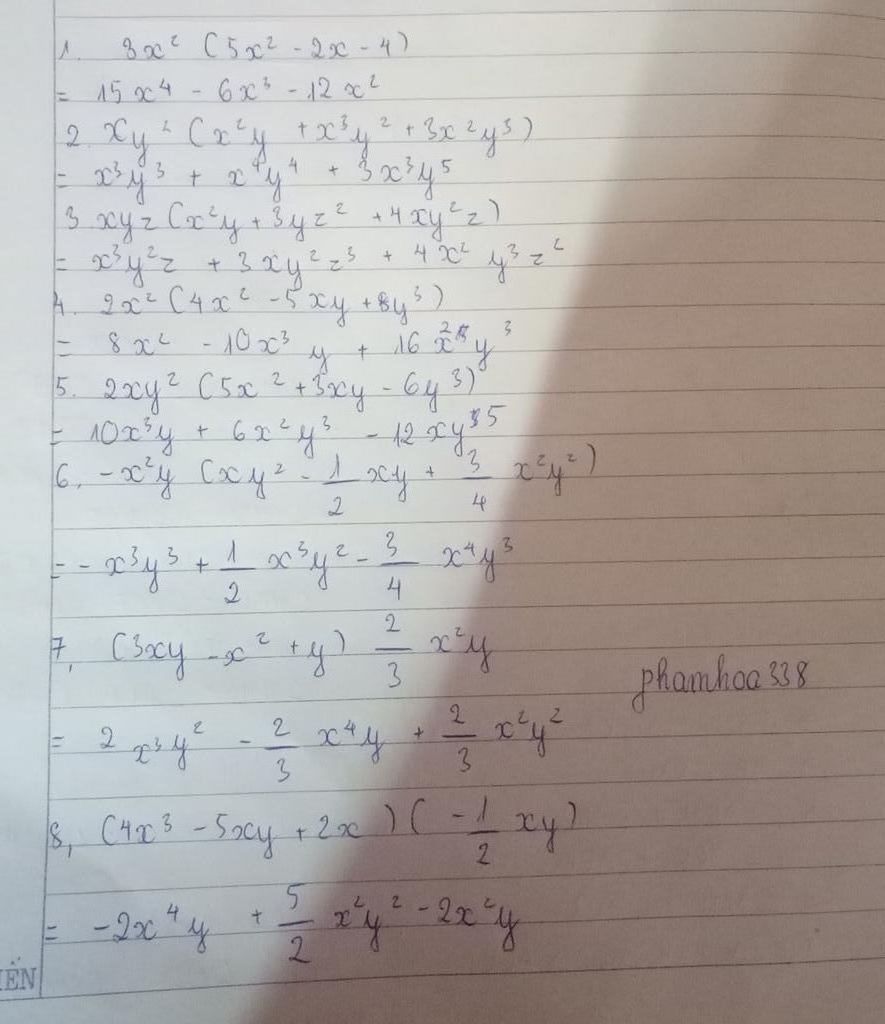 1. 3x² (5x² - 2x - 4)
= 15x⁴ - 6x³ - 12x²
2. xy² (x²y + x³y² + 3x²y³)
= x³y³ + x⁴y⁴ + 3x³y⁵
3 xyz (x²y + 3yz² + 4xy²z)
= x³y²z + 3xy²z³ + 4x² y³z²
4. 2x² (4x² - 5xy + 8y³)
= 8x² - 10x³y + 16x²y³
5. 2xy² (5x² + 3xy - 6y³)
= 10x³y + 6x²y³ - 12xy⁵
6, -x²y (xy² - 1/2 xy + 3/4 x²y²)
= -x³y³ + 1/2 x³y² - 3/4 x⁴y³
7, (3xy - x² + y) 2/3 x²y
phamhoa338
= 2x³y² - 2/3 x⁴y + 2/3 x²y²
8, (4x³ - 5xy + 2x) (-1/2 xy)
= -2x⁴y + 5/2 x²y² - 2x²y
IẾN